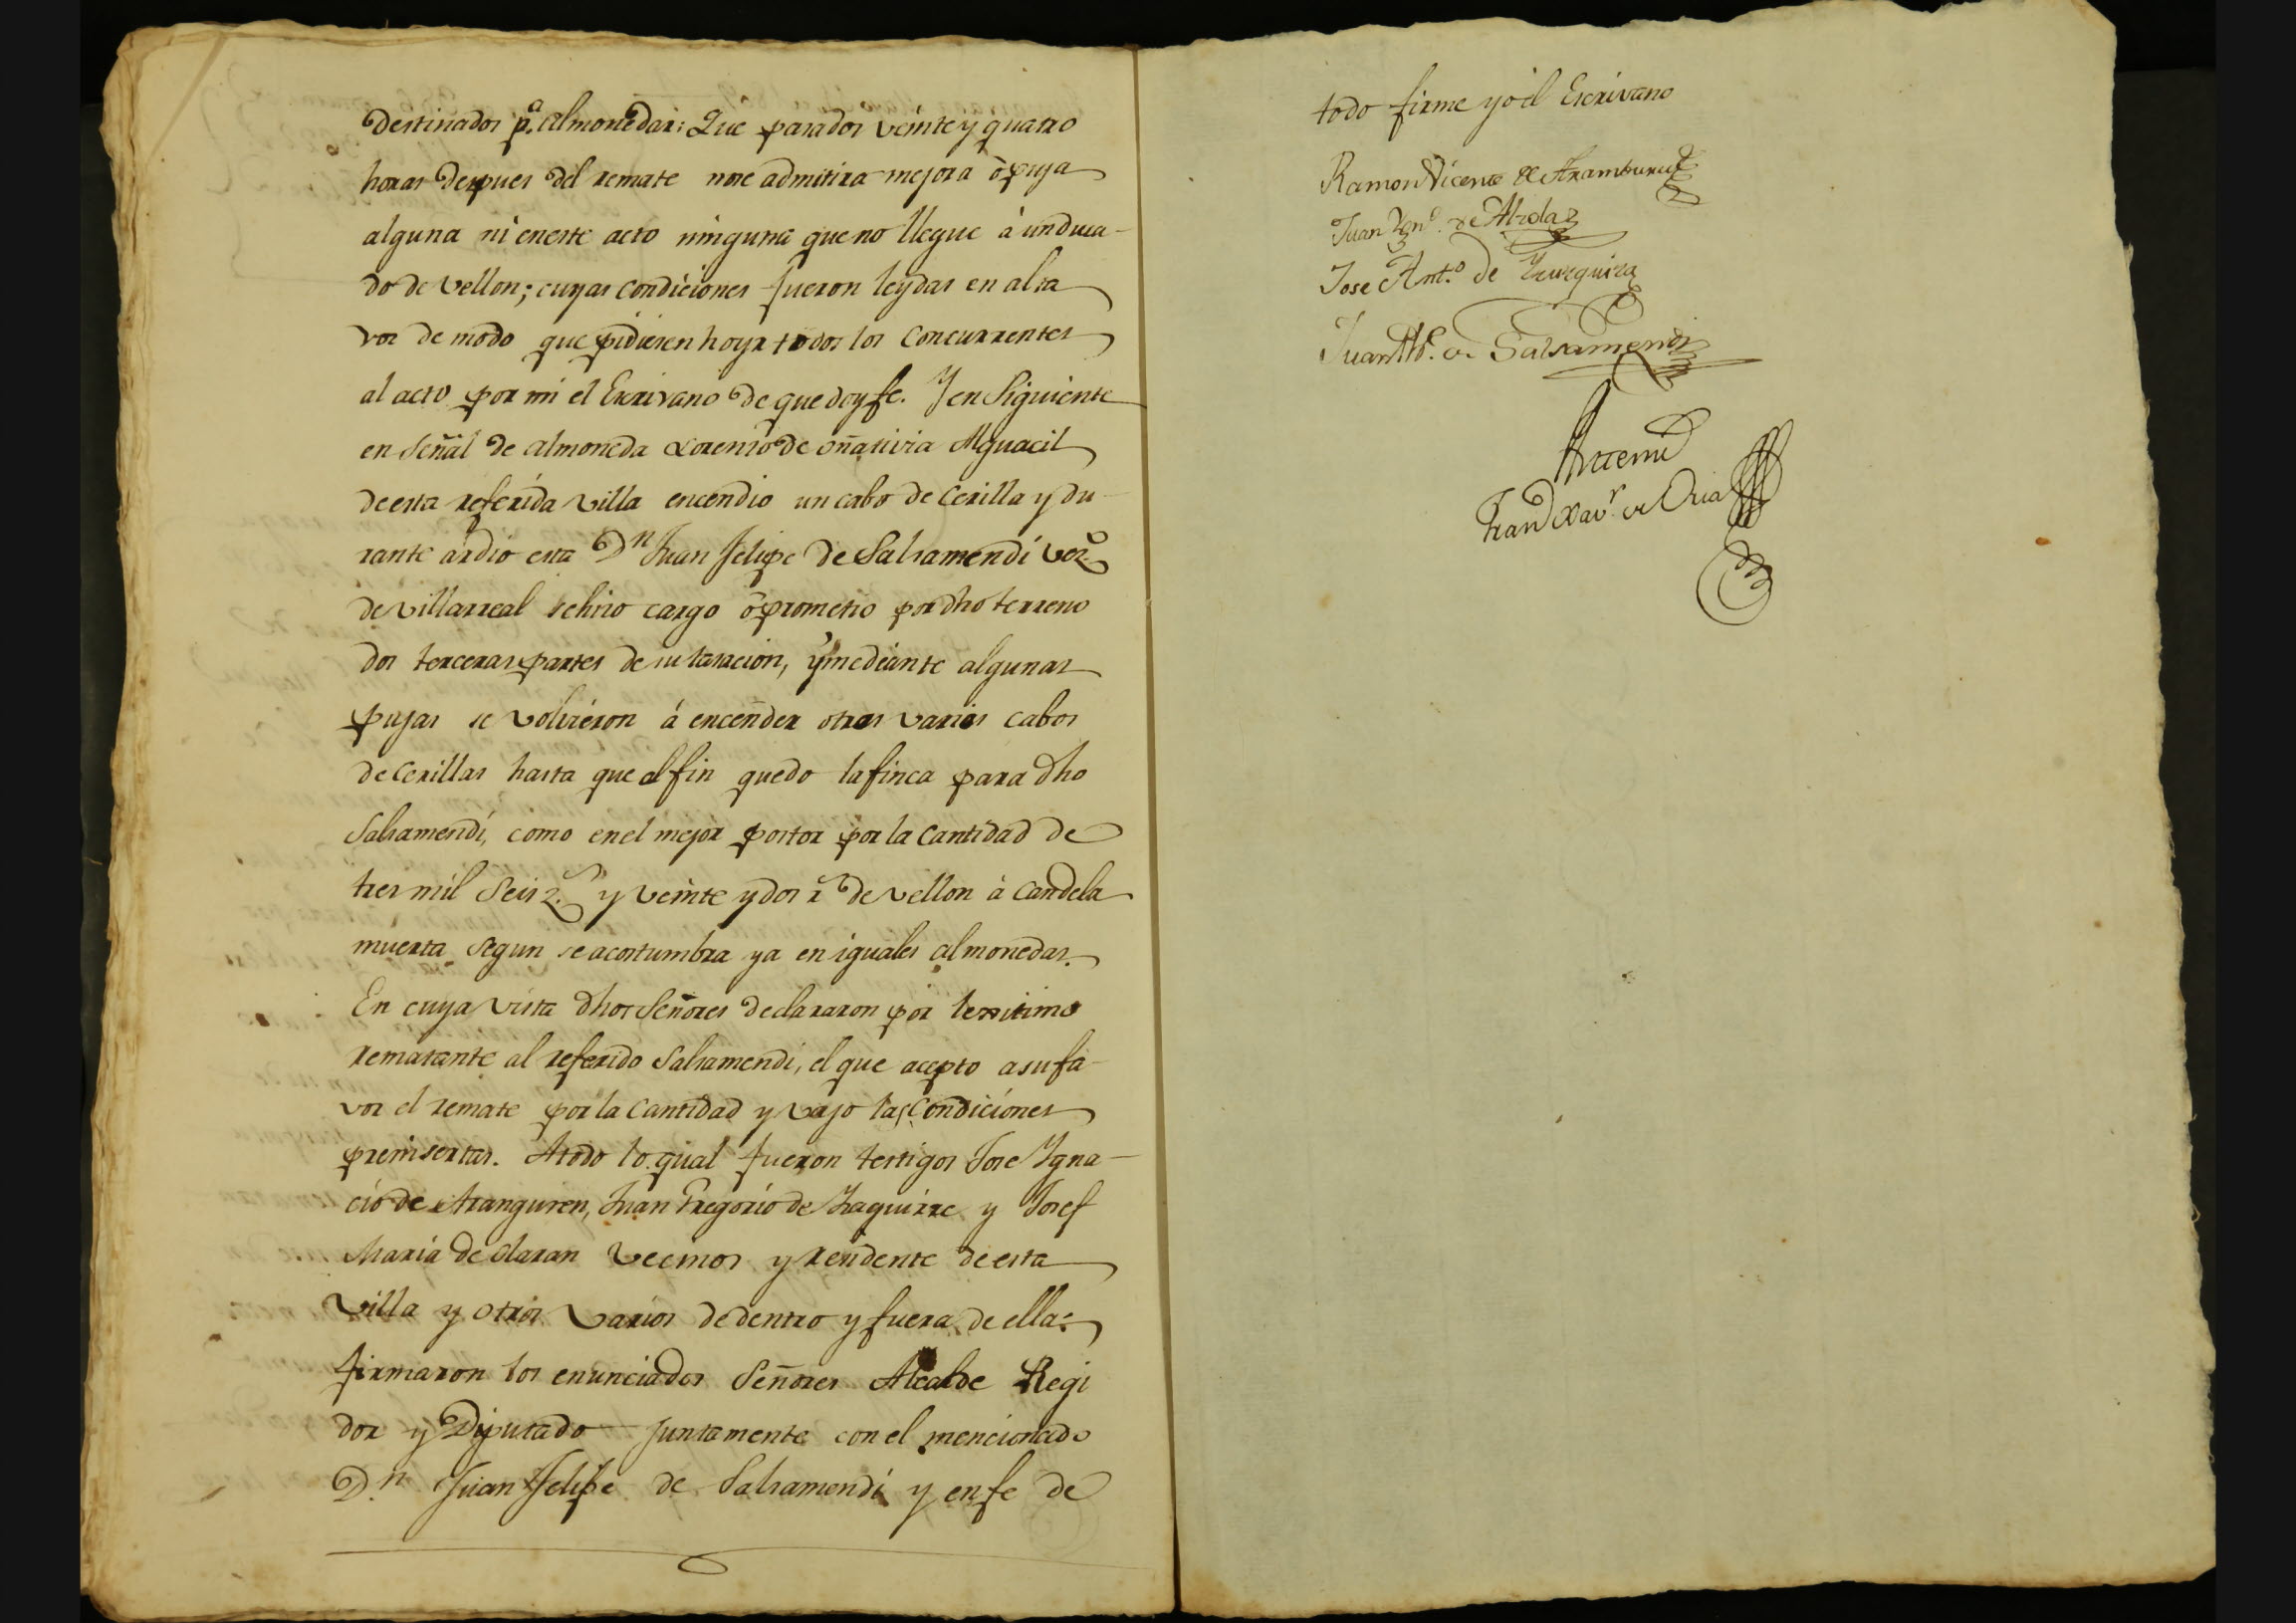 destinados p.ª almonedas: Que pasados veinte y quatro
horas despues del remate nose admitira mejora ò puja
alguna ni eneste acto ninguna que no llegue à unduca-
do de vellon; cuyas condiciones fueron leydas en alta
voz de modo que pidiesen hoyr todos los concurrentes
al acto por mi el Escrivano de que doy fe. Y en siguiente
en señal de almoneda Lorenzo de Oñativia Alguacil
de esta referida villa encendio un cabo de cerilla y du-
rante ardio esta Dⁿ Juan Felipe de Salsamendi vezº
de Villarreal sehizo cargo ò prometio por dho terreno
dos terceras partes de su tasacion, y mediante algunas
pujas se volvieron à encender otros varios cabos
de cerillas hasta que al fin quedo la finca para dho
Salsamendi, como en el mejor postor por la cantidad de
tres mil seis z.ˢ y veinte y dos rˢ de vellon à candela
muerta segun se acostumbra ya en iguales almonedas.
En cuya vista dhos Señores declararon por lexitimo
rematante al referido Salsamendi, el que acepto a su fa-
vor el remate por la cantidad y vajo las condiciones
preinsertas. Atodo lo qual fueron testigos Jose Ygna-
cio de Aranguren, Juan Gregorio de Yzaguirre y Josef
Maria de Olaran vecinos y residente de esta
villa y otros varios de dentro y fuera de ella:
firmaron los enunciados Señores Alcalde Regi
dor y Diputado juntamente con el mencionado
D.ⁿ Juan Felipe de Salsamendi y en fe de
todo firme yo el Escrivano
Ramon Vicente de Aramburu
Juan Ygnº. de Alzola
Jose Ant.º de Yzurquiza
Juan Phe. de Salsamendi
Antemi
Franº Xavʳ. de Oria